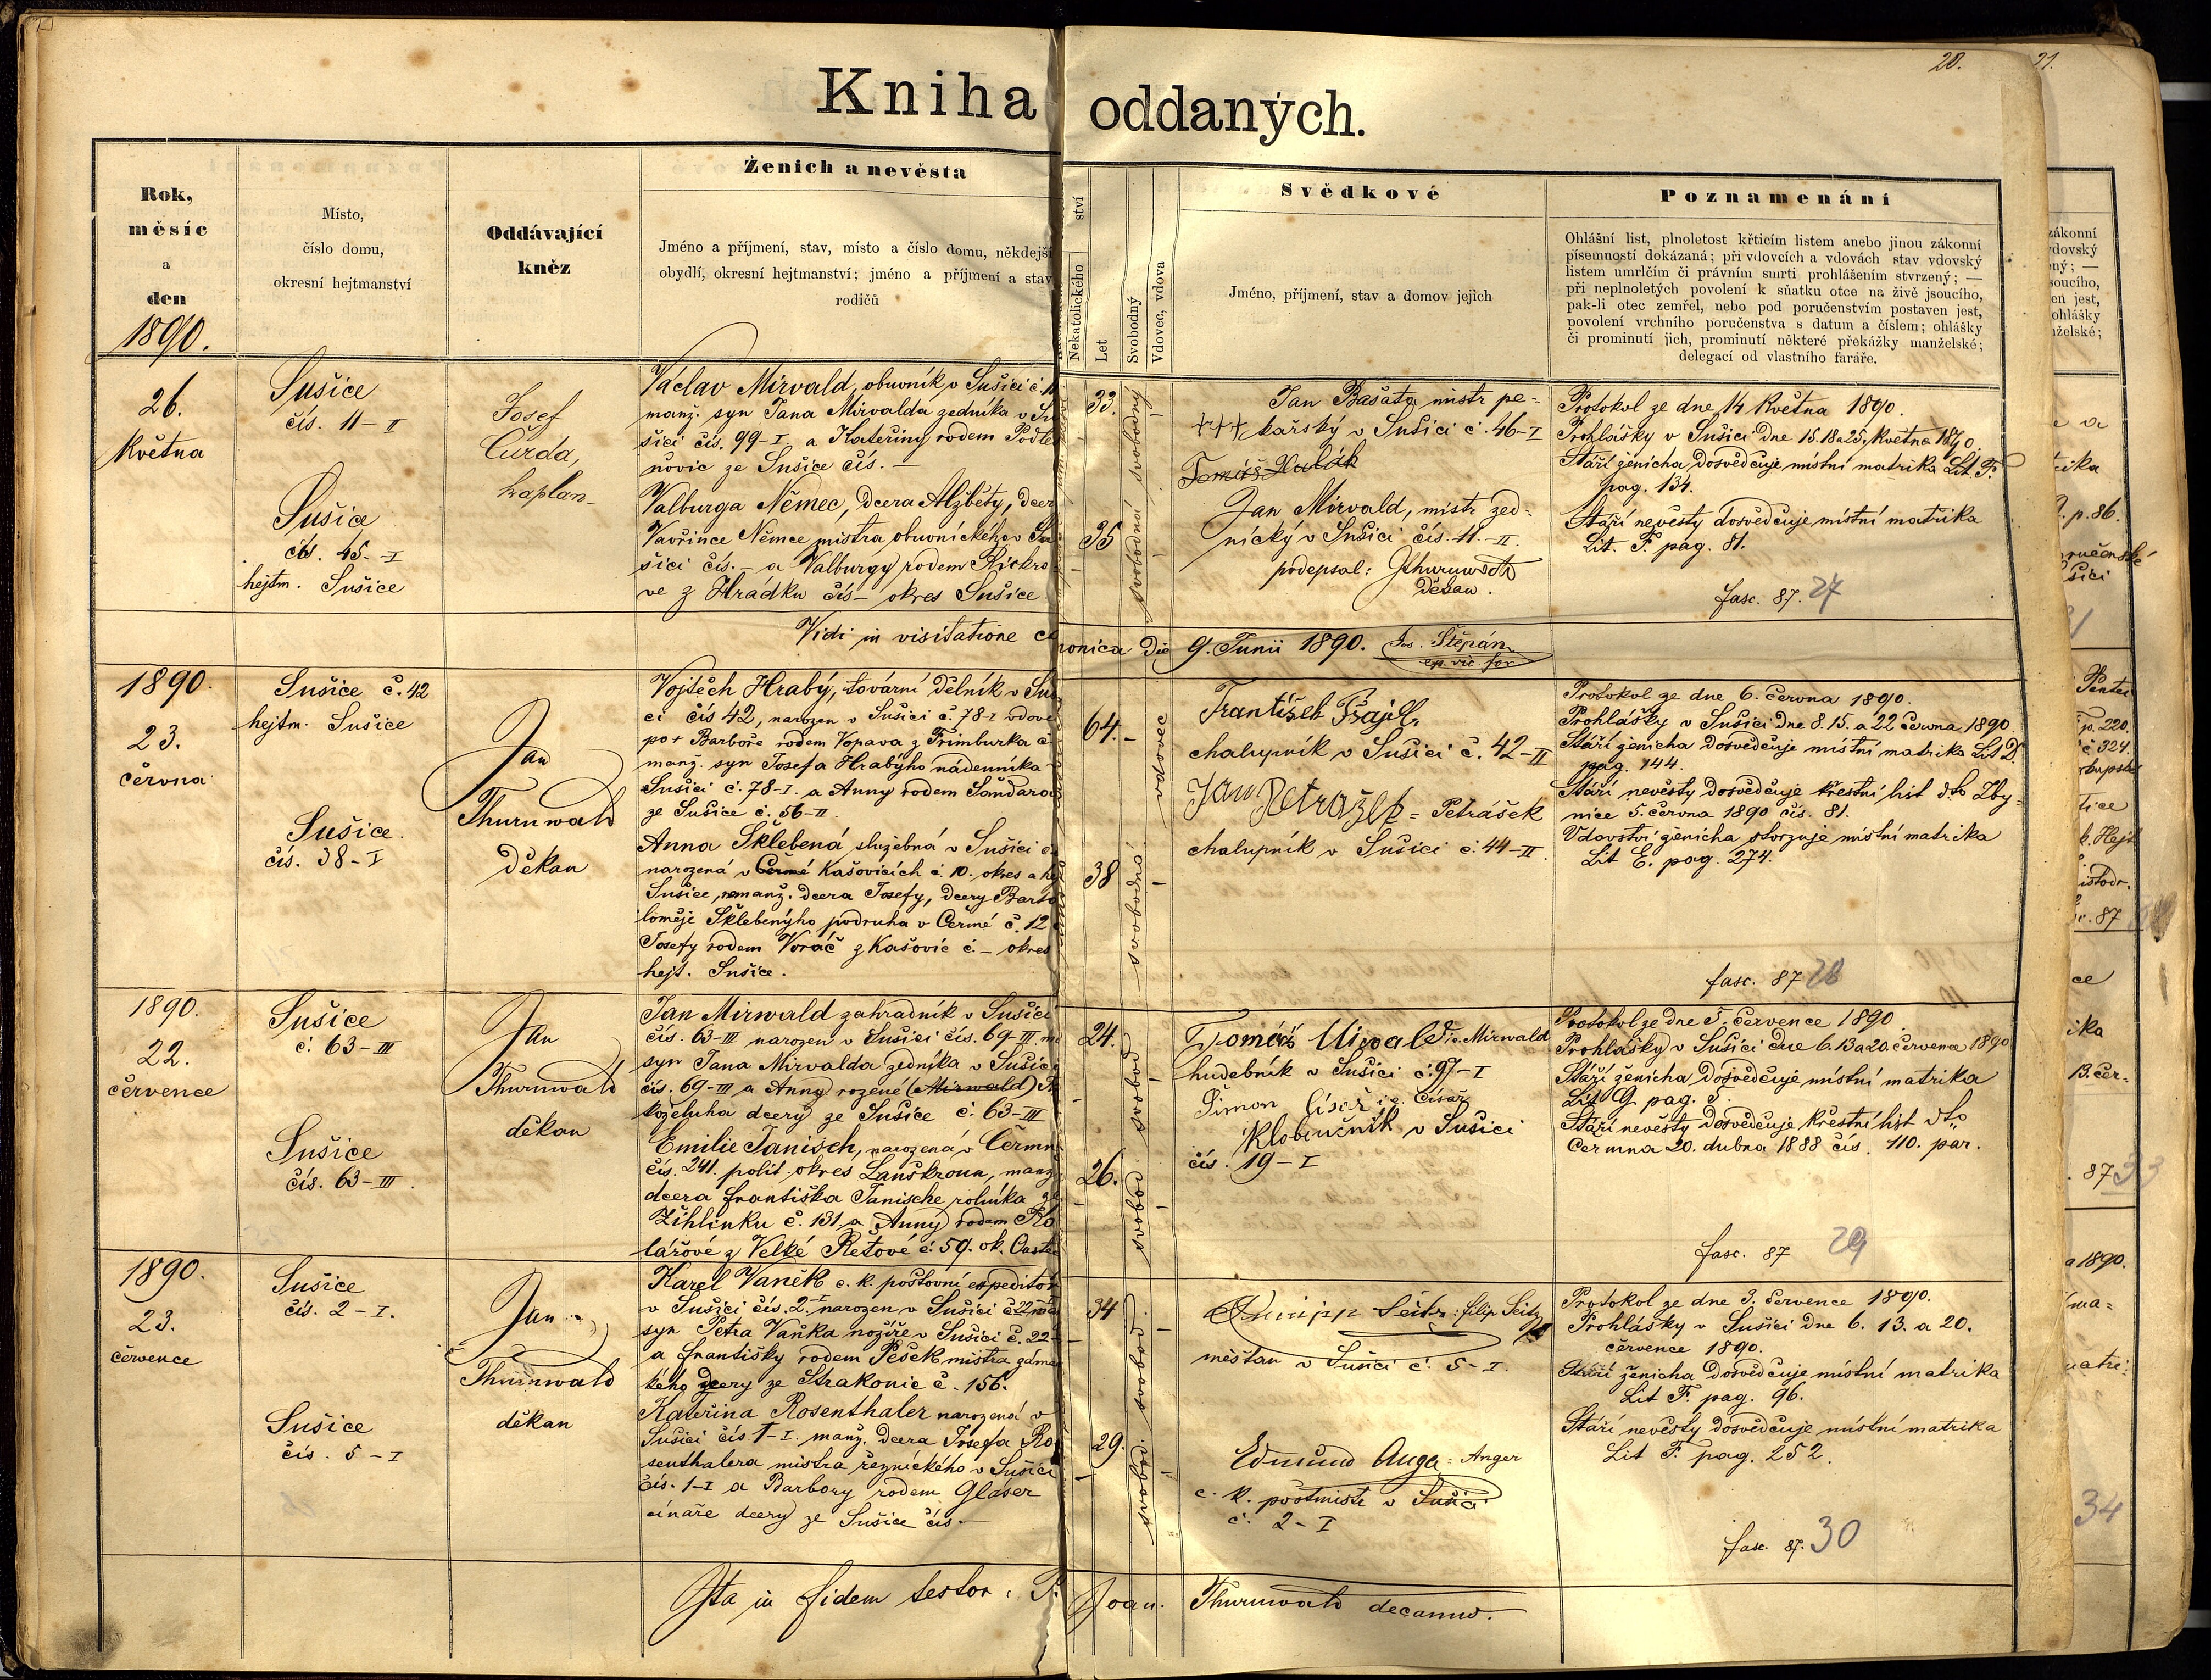 20.
21.
Kniha oddaných.
Rok,
měsíc
a
den
1890.
Místo,
číslo domu,
okresní hejtmanství
Oddávající
kněz
Ženich a nevěsta
Jméno a příjmení, stav, místo a číslo domu, někdejší
obydlí, okresní hejtmanství; jméno a příjmení a stav
rodičů
ství
Nekatolického
Let
Svobodný
Vdovec, vdova
Svědkové
Jméno, příjmení, stav a domov jejich
Poznamenání
Ohlášní list, plnoletost křticím listem anebo jinou zákonní
písemností dokázaná; při vdovcích a vdovách stav vdovský
listem umrlčím či právním smrti prohlášením stvrzený; —
při neplnoletých povolení k sňatku otce na živě jsoucího,
pak-li otec zemřel, nebo pod poručenstvím postaven jest,
povolení vrchního poručenstva s datum a číslem; ohlášky
či prominutí jich, prominutí některé překážky manželské;
delegací od vlastního faráře.
26.
Května
Sušice
čís. 11-II
Sušice
čís. 45-I
hejtm. Sušice
Josef
Čurda,
kaplan
Václav Mirvald, obuvník v Sušici č.
manž. syn Jana Mirvalda zedníka v Su
šici čís. 99-I. a Kateřiny rodem Podle
šnovic ze Sušice čís. —
Valburga Němec, dcera Alžběty, dcer
Vavřince Němce mistra obuvnického v Su
šici čís. — a Valburgy rodem
ve z Hrádku čís — okres Sušice
33.
svobodný
35
svobodná
Jan Bašata mistr pe-
+++ kařský v Sušici č. 46-I
Jan Mirvald, mistr zed-
nický v Sušici čís. 11.-II.
podepsal: JThurnwald
Děkan.
Protokol ze dne 14 Května 1890.
Prohlášky v Sušici dne 15. 18 a 25. Května 1890.
Stáří ženicha dosvědčuje místní matrika Lit. F.
pag. 134.
Stáří nevěsty dosvědčuje místní matrika
Lit. F. pag. 81.
fasc. 87. 27
Vidi in visitatione canonica die 9. Junii 1890. Jos. Štěpán
ep. vic for
1890.
23.
června
Sušice č. 42
hejtm. Sušice
Sušice.
čís. 38-I
Jan
Thurnwald
Děkan
Vojtěch Hrabý, tovární dělník v Suši
ci čís 42, narozen v Sušici č. 78-I vdovec
po + Barboře rodem Vopava z Frimburka č
manž. syn Josefa Hrabýho nádenníka
Sušici č. 78-I. a Anny rodem Šandaro
ze Sušice č. 56-II
Anna Šklebená služebná v Sušici č
narozená v Čermé Kašovicích č. 10. okres a hej
Sušice, nemanž. dcera Josefy, dcery Barto
loměje Šklebenýho podruha v Čermé č. 12
Josefy rodem Voráč z Kašovic č. — okres
hejt. Sušice.
64.
vdovec
38
svobodná
František Frajdl,
chalupník v Sušici č. 42-II
Jan Petražek = Petrášek
chalupník v Sušici č. 44-II.
Protokol ze dne 6. června 1890.
Prohlášky v Sušici dne 8. 15. a 22 června 1890
Stáří ženicha dosvědčuje místní matrika Lit D.
pag. 144.
Stáří nevěsty dosvědčuje křestní list dto Zby-
nice 5. června 1890 čís. 81.
Vdovství ženicha stvrzuje místní matrika
Lit E. pag. 274.
fasc. 87 28
1890.
22.
července
Sušice
č. 63-III
Sušice
čís. 63-III.
Jan
Thurnwald
děkan
Jan Mirwald zahradník v Sušici
čís. 63-III narozen v Sušici čís. 69-III ma
syn Jana Mirvalda zedníka v Sušici
čís. 69-III a Anny rozené (Mirwald)
koželuha dcery ze Sušice č. 63-III
Emilie Janisch, narozená v Čermn
čís. 241. polit. okres Lanškroun, manž
dcera Františka Janische rolníka ze
Žihlinku č. 131, a Anny rodem Ko
lářové z Velké Řetové č. 59. ok.
24.
svobod
26.
svobod
Tomáš Mirvald i.e. Mirwald
hudebník v Sušici č. 97-I
Šimon Císař i.e. Císař
Klobučník v Sušici
čís. 19-I
Protokol ze dne 5. července 1890
Prohlášky v Sušici dne 6. 13 a 20. července 1890
Stáří ženicha dosvědčuje místní matrika
Lit G. pag. 5.
Stáří nevěsty dosvědčuje křestní list dto
Čermna 20. dubna 1888 čís. 110. par.
fasc. 87 29
1890.
23.
července
Sušice
čís. 2-I.
Sušice
čís. 5-I
Jan
Thurnwald
děkan
Karel Vaněk c. k. poštovní expeditor
v Sušici čís. 2.-I narozen v Sušici č 22
syn Petra Vaňka nožíře v Sušici č. 22-
a Františky rodem Pešek mistra záme
kého dcery ze Strakonic č. 156.
Kateřina Rosenthaler narozená v
Sušici čís 1-I. manž. dcera Josefa Ro
senthalera mistra řeznického v Sušici
čís. 1-I a Barbory rodem Gláser
cínaře dcery ze Sušice čís —
34
svobod.
29.
svobod.
Philipp Seitz: filip Seitz
měšťan v Sušici č. 5-I.
Edmund Anger = Anger
c. k. poštmistr v Sušici
č. 2-I
Protokol ze dne 3. července 1890.
Prohlášky v Sušici dne 6. 13. a 20.
července 1890.
Stáří ženicha dosvědčuje místní matrika
Lit F. pag. 96.
Stáří nevěsty dosvědčuje místní matrika
Lit F. pag. 252.
fasc. 87. 30
Ita in fidem testor: P. Joan. Thurnwald decanus.
34